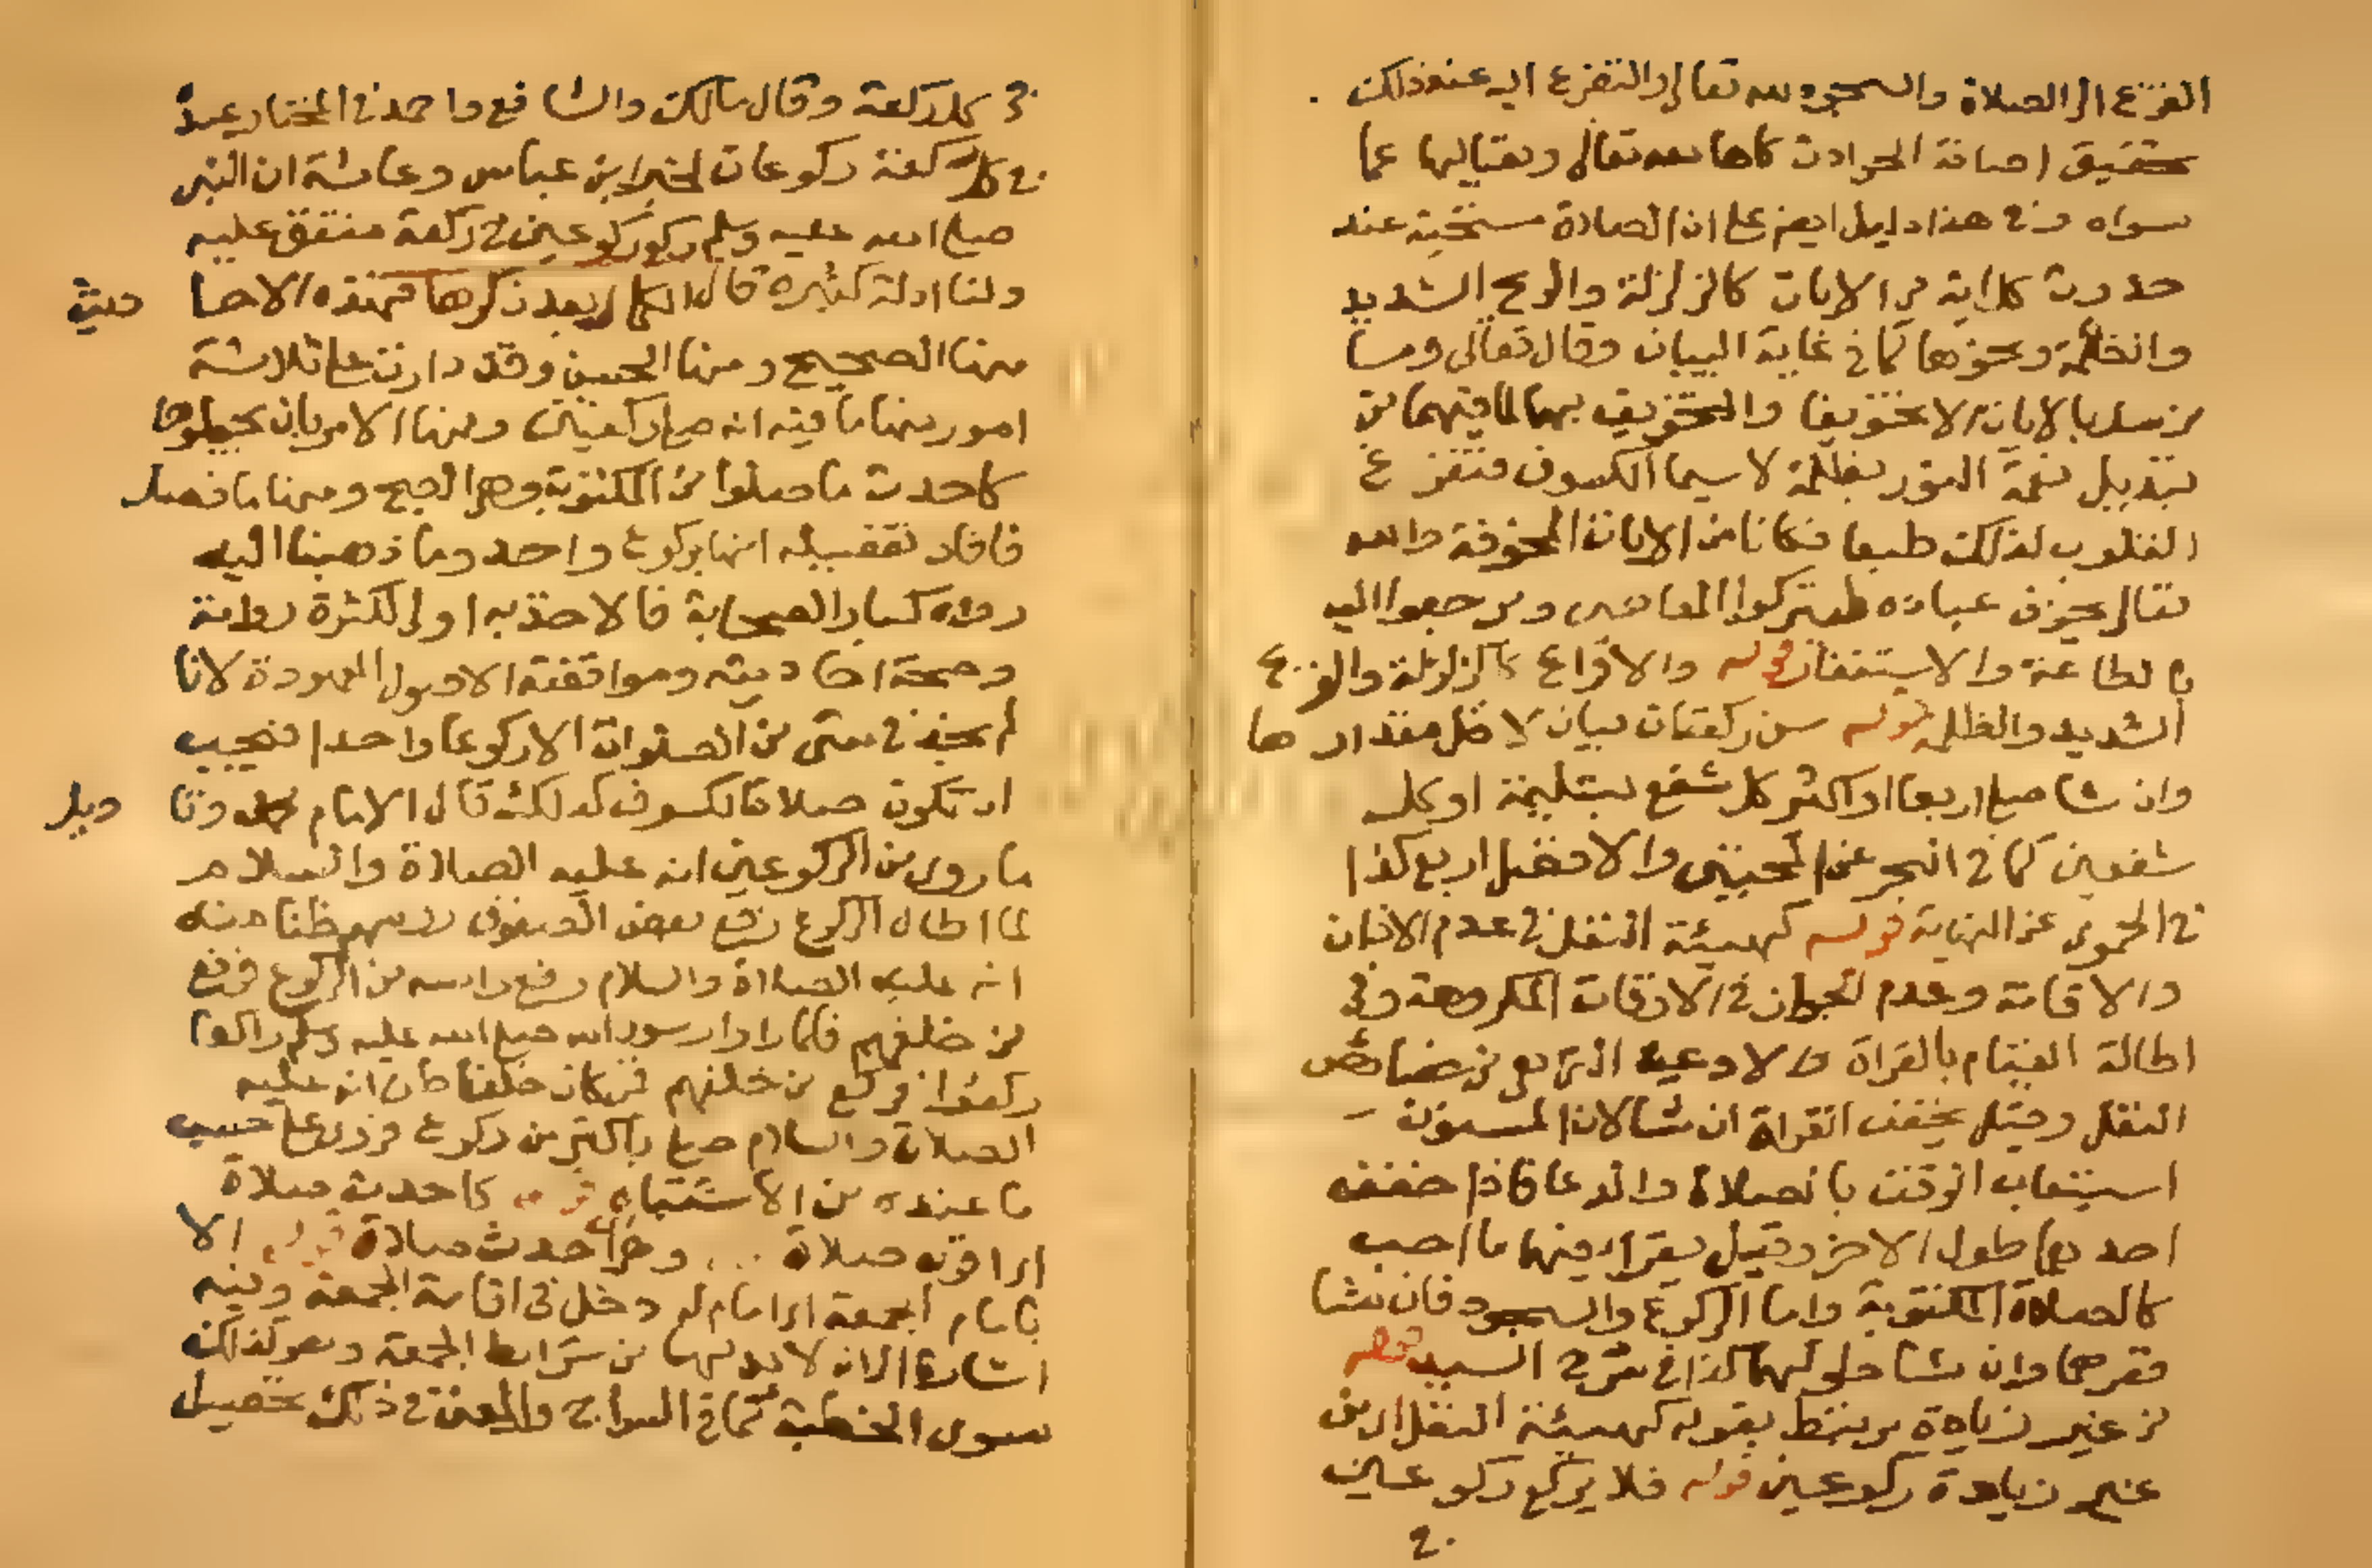 الفزع الى الصلاة والسجود لله تعالى والتضرع اليه عند ذلك
تحقيق اضافة الحوادث كلها لله تعالى ونفيها عما
سواه وفي هذا دليل ايضا على ان الصلاة مستحبة عند
حدوث كل اية من الايات كالزلزلة والريح الشديد
والظلمة ونحوها كما في غاية البيان وقال تعالى وما
نرسل بالايات الا تخويفا والتخويف بهما لما فيهما من
تبديل نعمة النور بظلمة لا سيما الكسوف فتفزع
القلوب لذلك طبعا فكانا من الايات المخوفة والله
تعالى يخوف عباده ليتركوا المعاصي ويرجعوا اليه
بالطاعة والاستغفار قوله والافزاع كالزلزلة والفزع
الشديد والظلمة قوله سن ركعتان بيان لاقل مقدارها
وان شا صلى اربعا او اكثر كل شفع بتسليمة او كل
شفعين كما في البحر عن المجتبى والافضل اربع كذا
في الحموي عن النهاية قوله كهيئة النفل في عدم الاذان
والاقامة وعدم الجواز في الاوقات المكروهة وفي
اطالة القيام بالقراة والادعية التي هي من خصائص
النفل وقيل يخفف القراة ان شا لان المسنون
استيعاب الوقت بالصلاة والدعا فاذا خفف
احدهما طول الاخر وقيل يقرا فيها ما احب
كالصلاة المكتوبة واما الركوع والسجود فان شا
قصرهما وان شا طولهما كذا في شرح السيد قوله
من غير زيادة يرتبط بقوله كهيئة النفل اي من
غير زيادة ركوعين قوله فلا يركع ركوعين
في
في كل ركعة وقال مالك والشافعي واحمد في المختار عنه
في كل ركعة ركوعان لخبر ابن عباس وعائشة ان النبي
صلى الله عليه وسلم ركع ركوعين في ركعة متفق عليه
ولنا ادلة كثيرة قال الكمال بعد ذكرها فهذه الاحا ديث
منها الصحيح ومنها الحسن وقد دارت على ثلاثة
امور منها ما فيه انه صلى ركعتين ومنها الامر بان يجعلوها
كاحدث ما صلوا من المكتوبة وهي الصبح ومنها ما فصل
فافاد تفصيله انها بركوع واحد وما ذهبنا اليه
رواه كبار الصحابة فالاخذ به اولى لكثرة رواته
وصحة احاديثه وموافقته الاصول المعهودة لانا
لم نجد في شي من الصلوات الا ركوعا واحدا فيجب
ان تكون صلاة الكسوف كذلك قال الامام محمد وتا ويل
ما روي من الركوعين انه عليه الصلاة والسلام
لما اطال الركوع رفع بعض الصفوف رؤسهم ظنا منه
انه عليه الصلاة والسلام رفع راسه من الركوع فرفع
من خلفهم فلما راوا رسول الله صلى الله عليه وسلم راكعا
ركعوا فركع من خلفهم فمن كان خلفا ظن انه عليه
الصلاة والسلام صلى باكثر من ركوع فروى على حسب
ما عنده من الاشتباه قوله كاحدث صلاة
اي اقرب صلاة ... وهي احدث صلاة قوله الا
بامام الجمعة اي امام له دخل في اقامة الجمعة وفيه
اشارة الى انه لا بد لها من شرائط الجمعة وهو كذلك
سوى الخطبة كما في السراج والمعنى في ذلك تحصيل